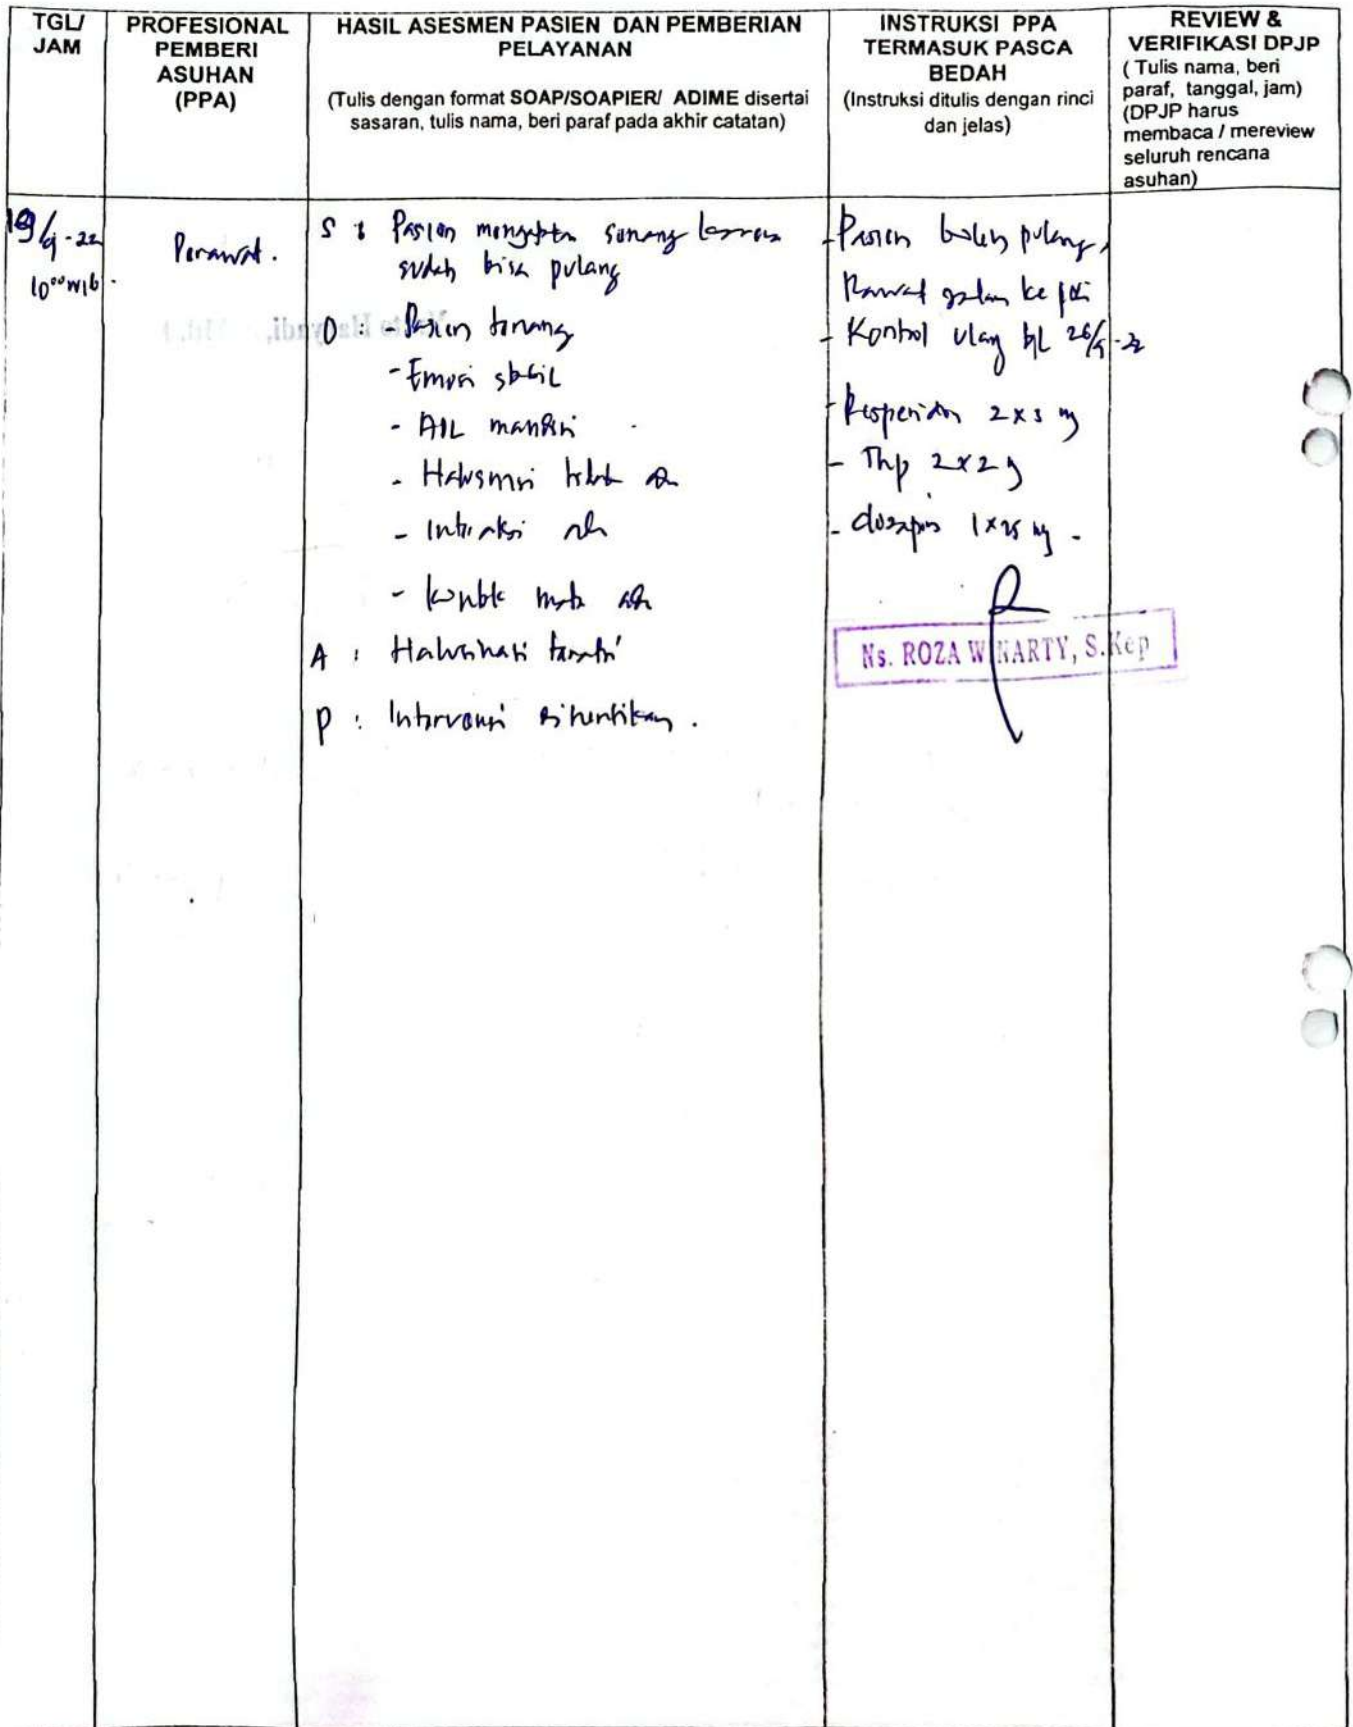 TGL/
JAM
PROFESIONAL
PEMBERI
ASUHAN
(PPA)
HASIL ASESMEN PASIEN DAN PEMBERIAN
PELAYANAN
(Tulis dengan format SOAP/SOAPIER/ ADIME disertai
sasaran, tulis nama, beri paraf pada akhir catatan)
INSTRUKSI PPA
TERMASUK PASCA
BEDAH
(Instruksi ditulis dengan rinci
dan jelas)
REVIEW &
VERIFIKASI DPJP
( Tulis nama, beri
paraf, tanggal, jam)
(DPJP harus
membaca / mereview
seluruh rencana
asuhan)
19/9-22
10⁰⁰ WIB.
Perawat.
S : Pasien mengatakan senang karena
sudah bisa pulang
O : - Pasien tenang
- Emosi stabil
- ADL mandiri
- Halusinasi tidak
- Interaksi
- Kontak mata
A : Halusinasi teratasi
P : Intervensi dihentikan.
- Pasien boleh pulang,
Rawat jalan ke poli
- Kontrol ulang tgl 26/9-22
- Risperidon 2 x mg
- Thp 2x2
- 1x25 mg -
Ns. ROZA WINARTY, S.Kep